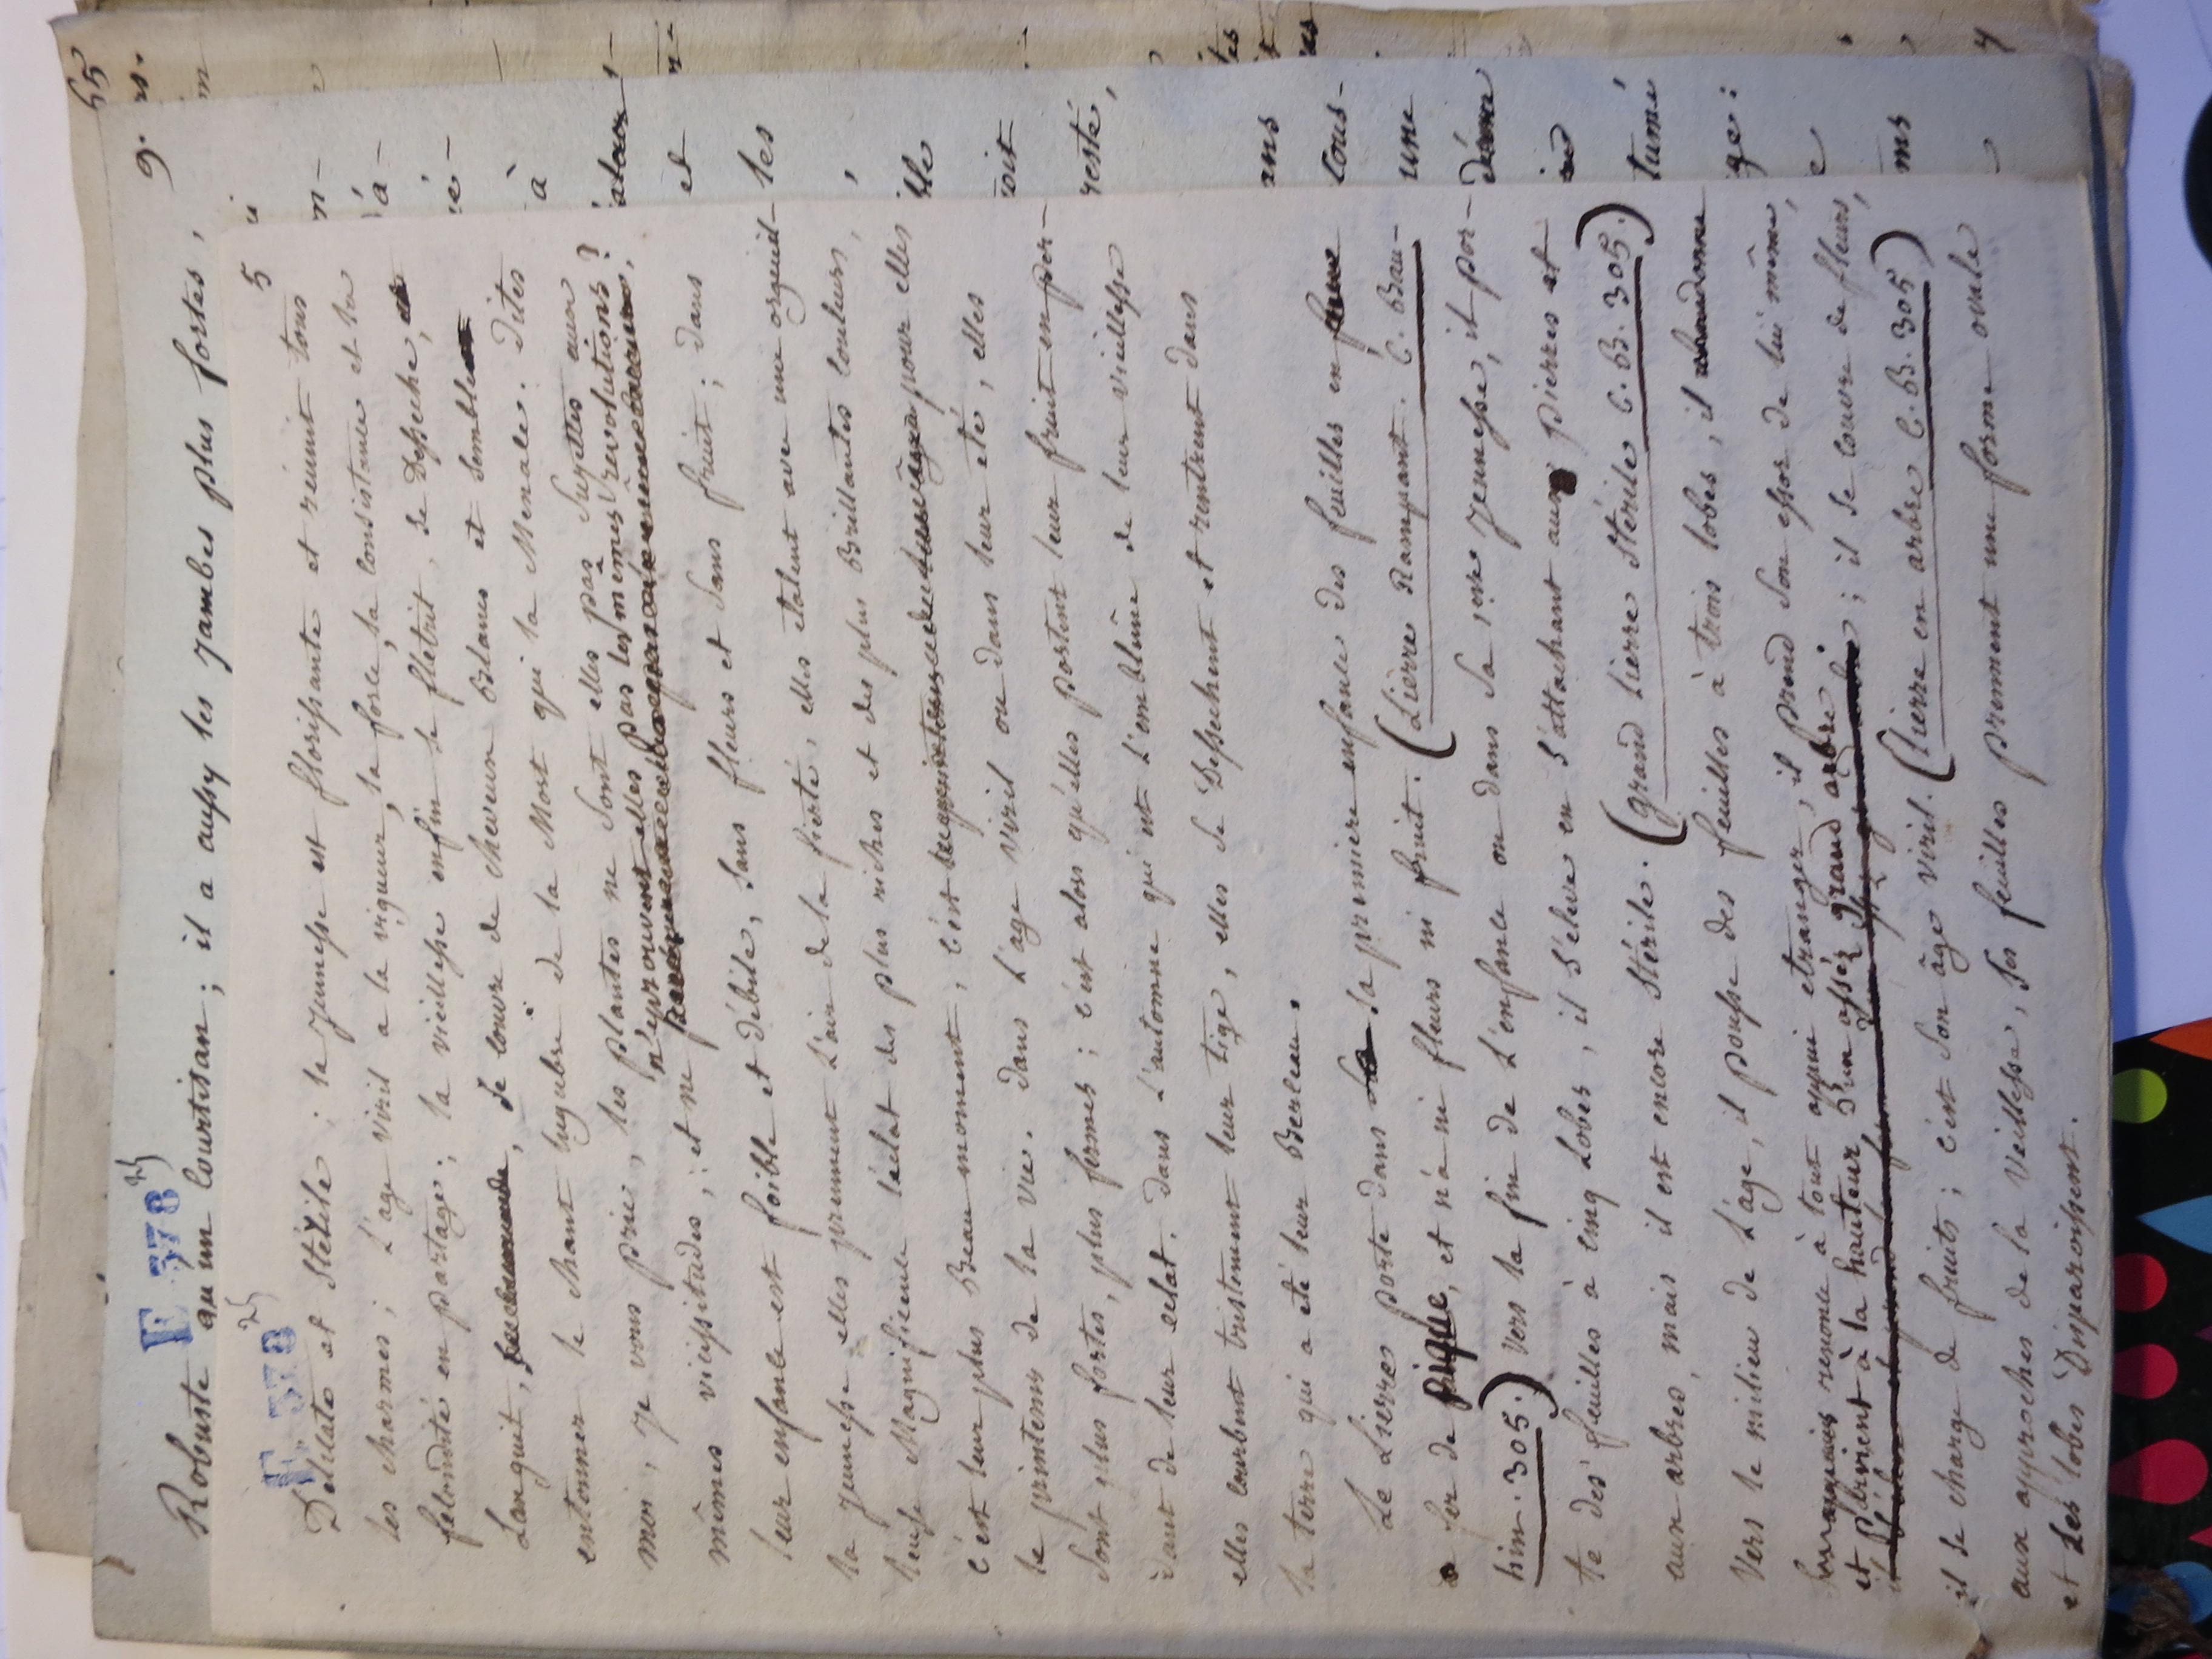 55
9.
E 378 25
Robuste qu'un courtisan; il a aussy les jambes plus fortes,
E 378 25
5
Delicate et Stérile; la jeunesse est florissante et réunit tous
les charmes; L'age viril a la vigueur, la force, la consistance et la
fécondité en partage; la vieillesse enfin se flétrit, se Desseche,
Languit, se couvre de cheveux Blancs et semble
entonner le chant lugubre de la Mort qui la Menace. Dites
moi, je vous prie, les plantes ne sont elles pas sujettes aux
n'eprouvent elles pas les mêmes revolutions?
mêmes vicissitudes, et ne
leur enfance est foible et débile, sans fleurs et sans fruit; dans
la jeunesse elles prennent l'air de la fierté, elles etalent avec une orgueil-
leuse Magnificence l'éclat des plus riches et des plus Brillantes couleurs,
c'est leur plus Beau moment; c'est pour elles
le printems de la vie. dans l'age viril ou dans leur eté, elles
sont plus fortes, plus fermes; c'est alors qu'elles portent leur fruit en per-
dant de leur eclat. dans l'automne qui est l'emblême de leur vieillesse
elles courbent tristement leur tige, elles se Dessechent et rentrent dans
la terre qui a eté leur Berceau.
Le Lierre porte dans la premiere enfance des feuilles en
fer de pique, et n'a ni fleurs ni fruit. (Lierre Rampant. C. Bau-
hin. 305.) vers la fin de L'enfance ou dans sa 1ere jeunesse, il por-
te des feuilles à cinq Lobes, il s'eleve en s'attachant aux pierres et
aux arbres, mais il est encore stérile. (grand Lierre Stérile C. B. 305.)
Vers le milieu de L'âge, il pousse des feuilles à trois lobes, il
renonce à tout appui etranger, il prend son essor de lui même,
et Parvient à la hauteur d'un assés grand arbre; il se couvre de fleurs,
il se charge de fruits; c'est son âge viril. (Lierre en arbre C. B. 305)
aux approches de la Vieillesse, ses feuilles prennent une forme ovale
et Les lobes Disparoissent.